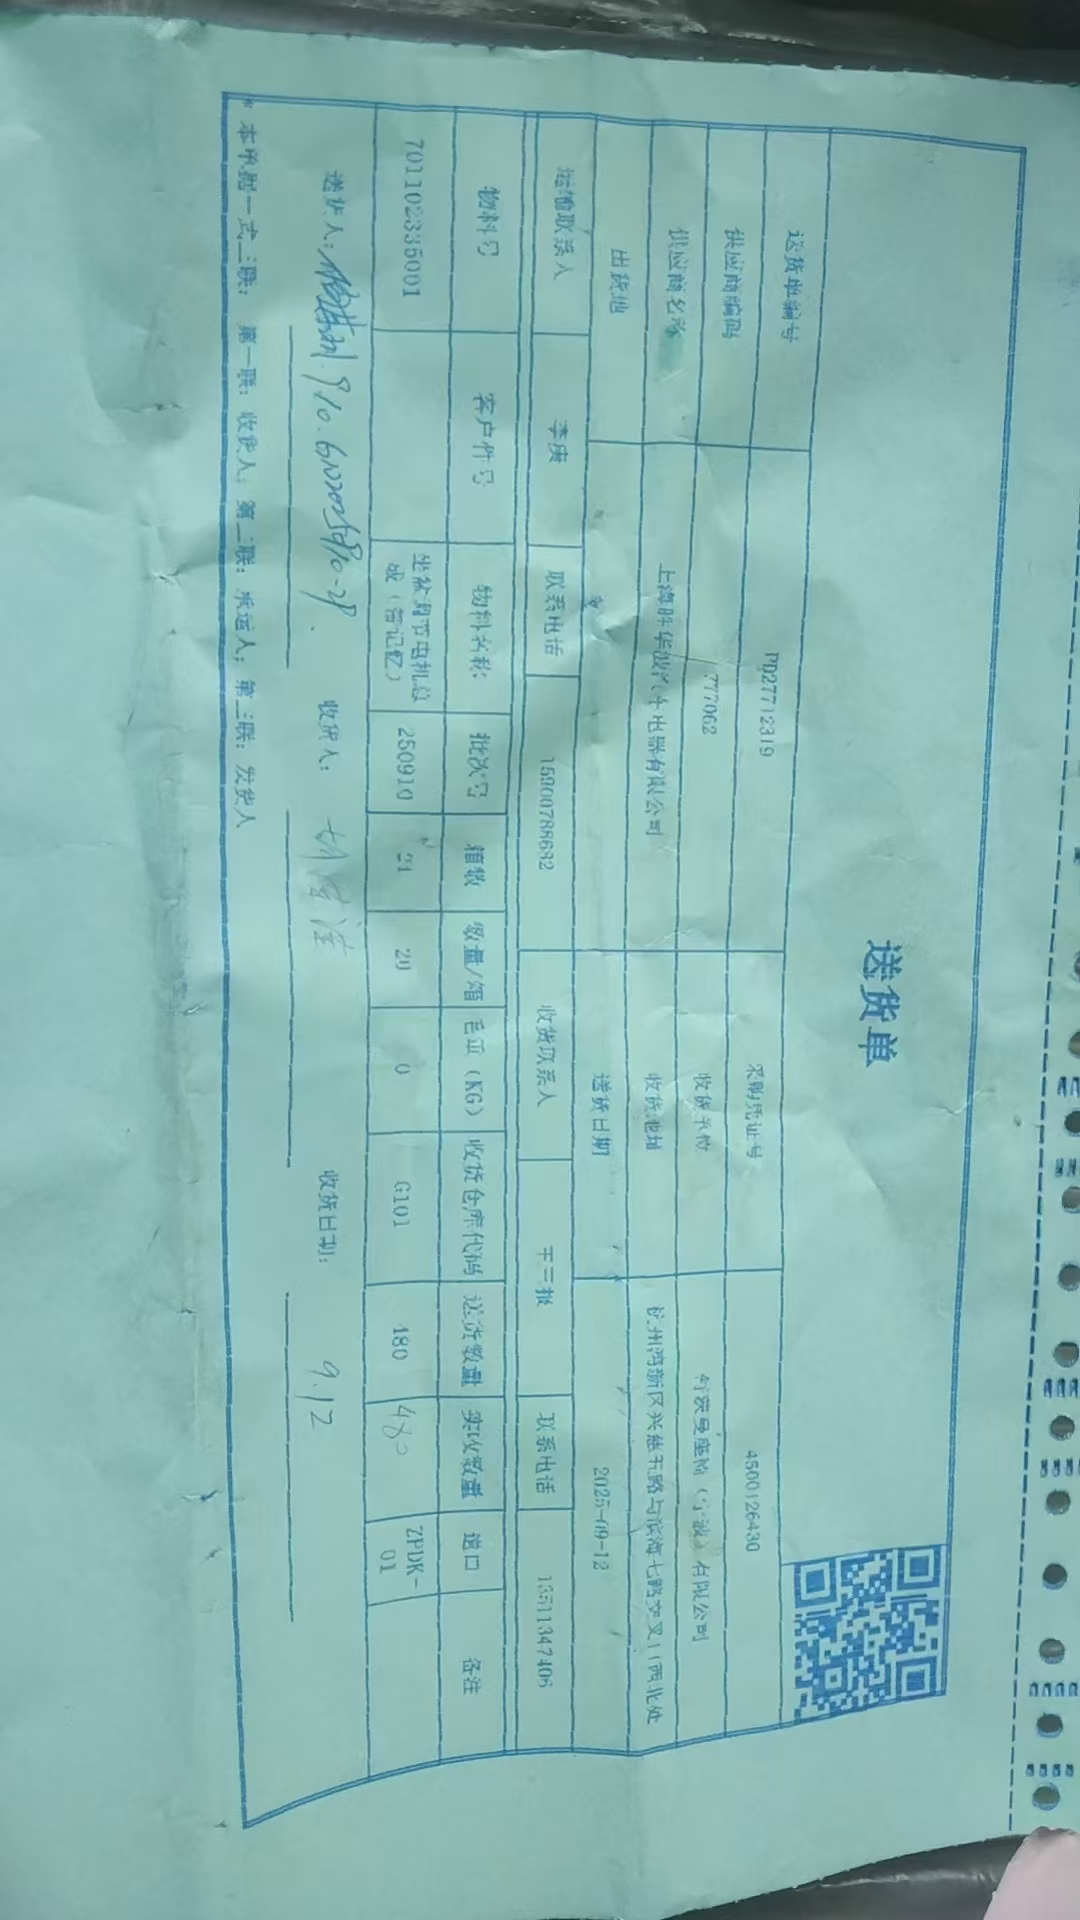 送货单
送货单编号 PD27712319 采购凭证号 4500126430
供应商编码 777062 收货单位 有限公司
供应商名称 上海胜华波汽车电器有限公司 收货地址 杭州湾新区兴慈五路与滨海七路交叉口西北处
出货地 送货日期 2025-09-12
运输联系人 李庚 联系电话 15900788682 收货联系人 联系电话 13511347406
物料号 客户件号 物料名称 批次号 箱数 数量/箱 毛重(KG) 收货仓库代码 送货数量 实收数量 道口 备注
701102335001 坐盆调节电机总成(带记忆) 250910 24 20 0 G101 480 480 ZPDK-01
送货人: 收货人: 收货日期: 9.12
* 本单据一式三联: 第一联: 收货人; 第二联: 承运人; 第三联: 发货人